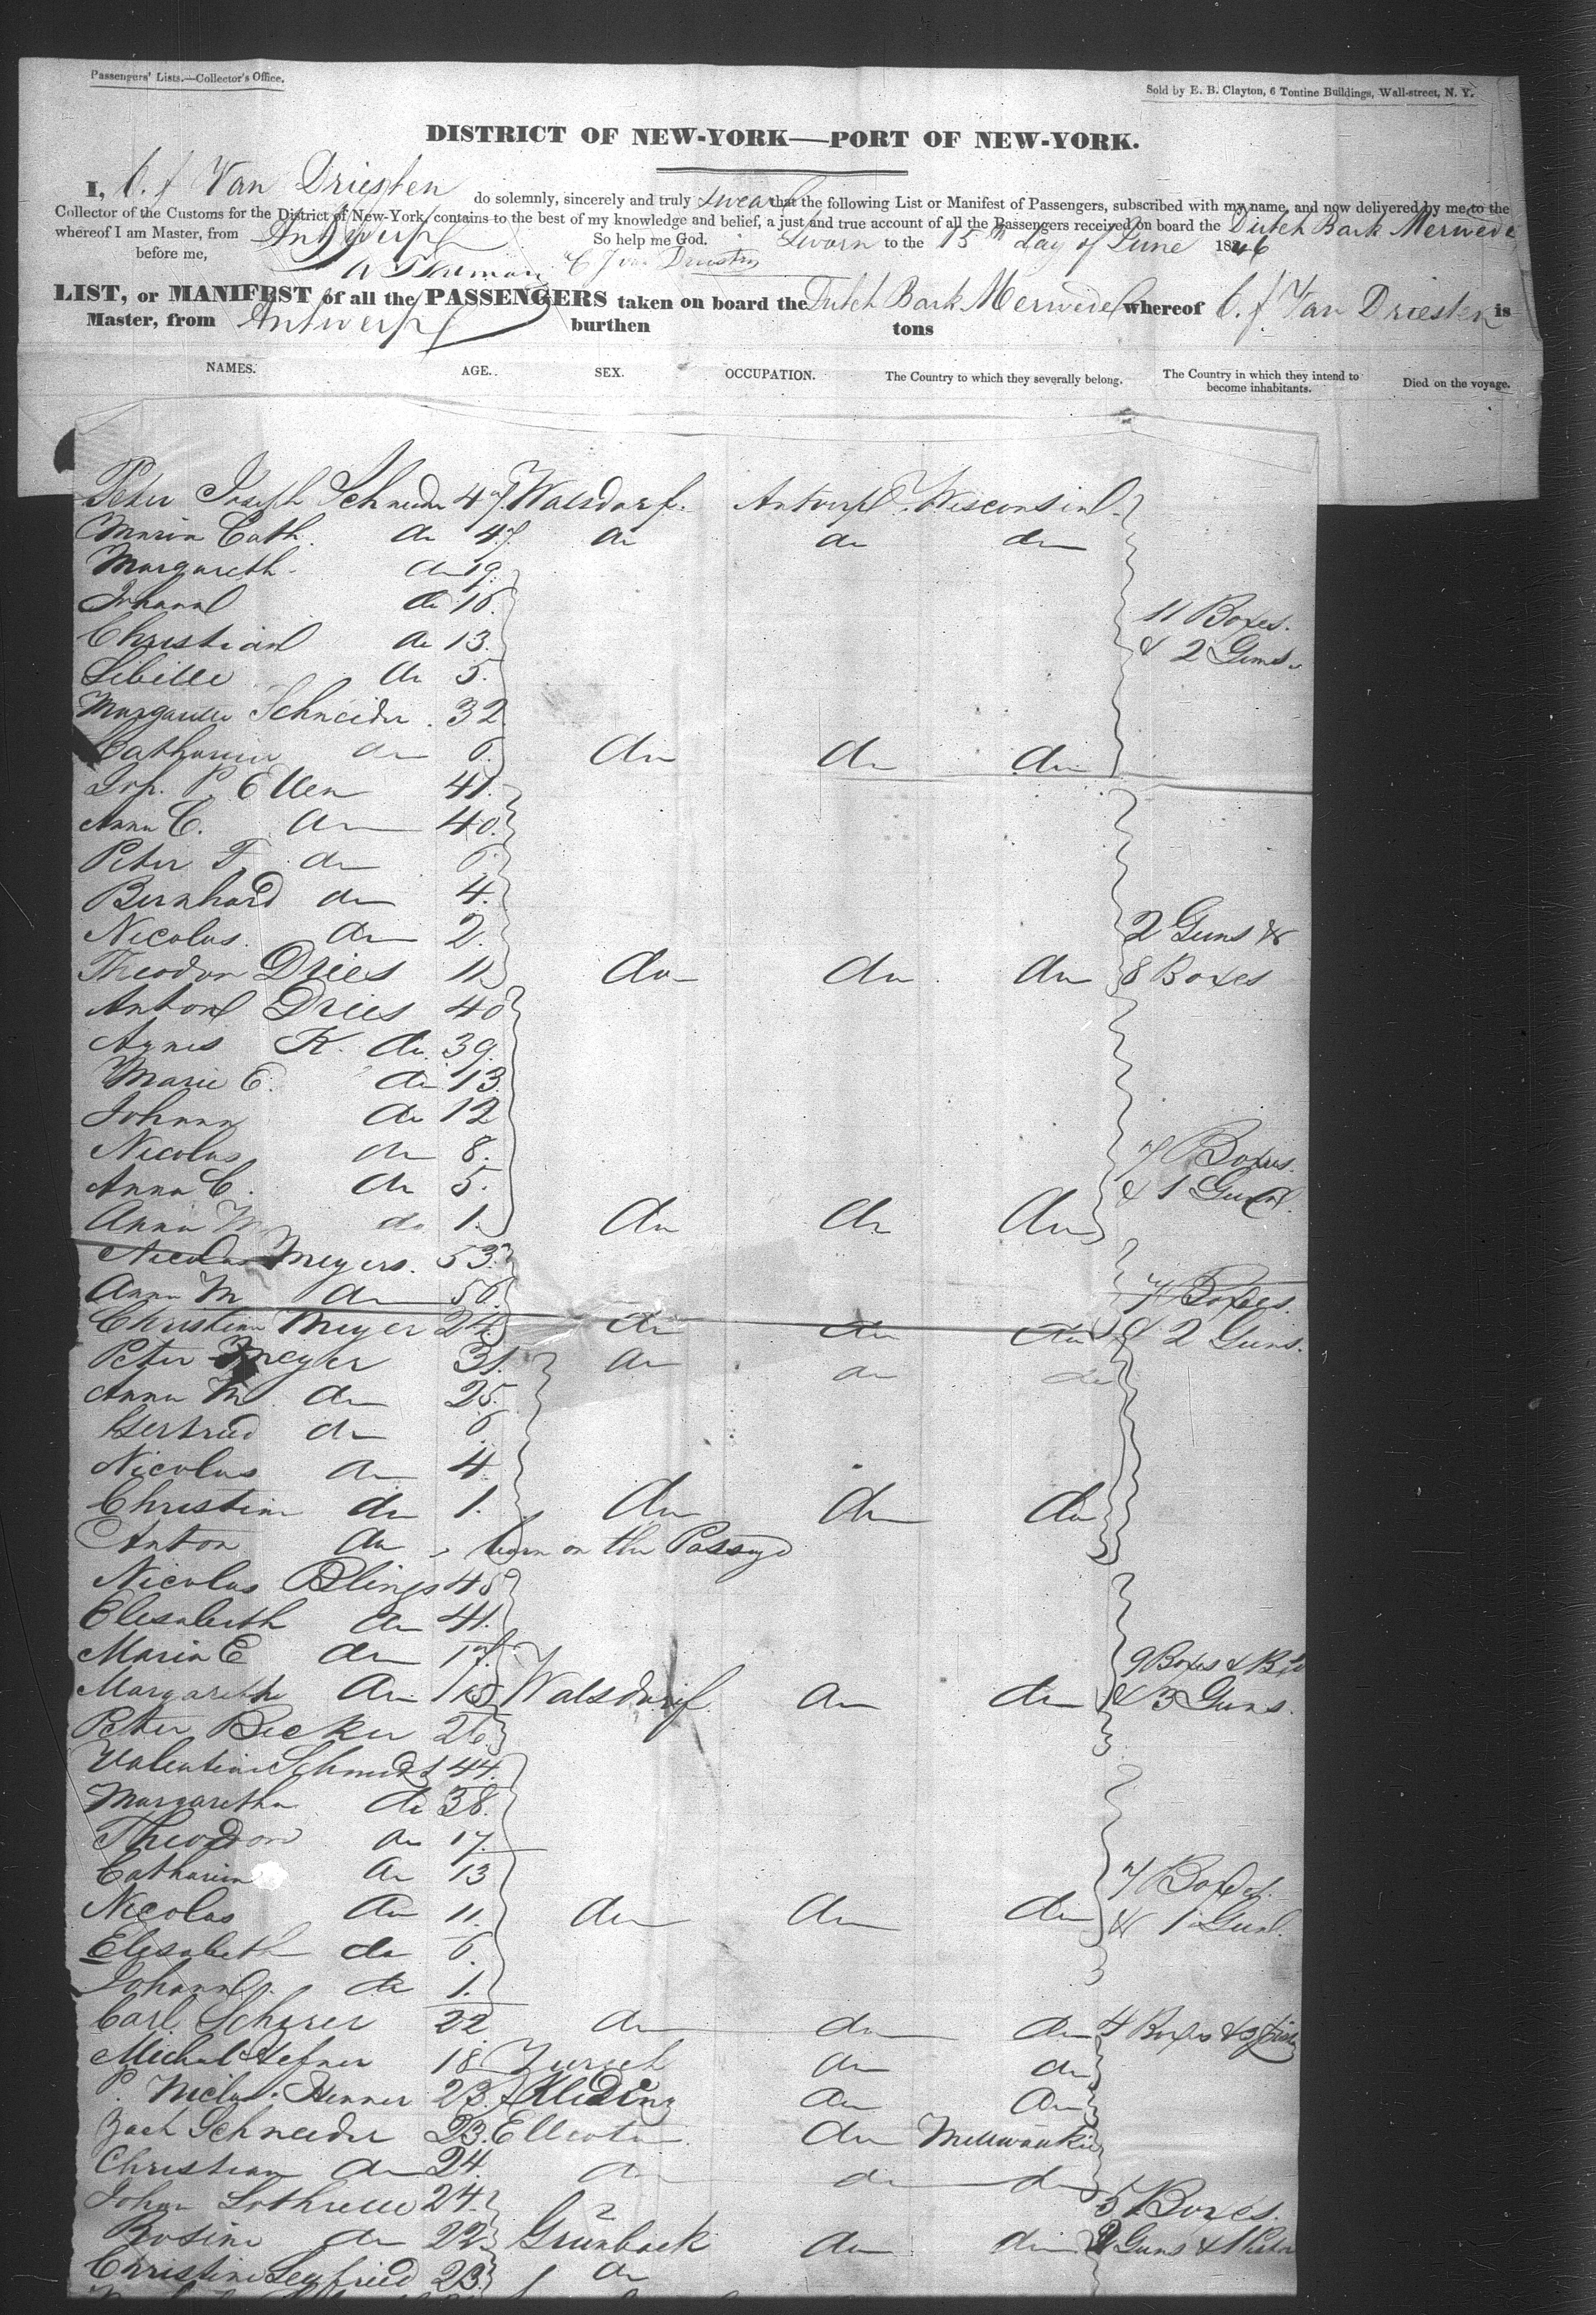 Passengers' Lists.—Collector's Office.
Sold by E. B. Clayton, 6 Tontine Buildings, Wall-street, N. Y.
DISTRICT OF NEW-YORK—PORT OF NEW-YORK.
I, C. J. Van Driesten do solemnly, sincerely and truly swear that the following List or Manifest of Passengers, subscribed with my name, and now delivered by me to the
Collector of the Customs for the District of New-York, contains to the best of my knowledge and belief, a just and true account of all the Passengers received on board the Dutch Bark Merwede
whereof I am Master, from Antwerp So help me God. Sworn to the 15th day of June 1846
before me, C J van Driesten
LIST, or MANIFEST of all the PASSENGERS taken on board the Dutch Bark Merwede whereof C. J. Van Driesten is
Master, from Antwerp burthen tons
NAMES. AGE. SEX. OCCUPATION. The Country to which they severally belong. The Country in which they intend to become inhabitants. Died on the voyage.
Peter Joseph Schneider 47 Walsdorf. Antwerp Wisconsin
Maria Cath. do 47. do do do
Margareth. do 19.
Johann do 16.
Christian do 13. 11 Boxes.
Sibille do 5. & 2 Guns.
Margaretha Schneider. 32
Catharina do 6. do do do
Joh. P. Ellen 41.
Anna C. do 40.
Peter T. do 6.
Bernhard do 4.
Nicolas. do 2. 2 Guns &
Theodor Dries 11 do do do 8 Boxes
Anton Dries 40
Agnes K. do. 39.
Marie E. do 13
Johann do 12
Nicolas do 8. 7 Boxes.
Anna C. do 5. & 1 Gun.
Anna M do 1. do do do
Nicolas Meyers. 53.
Anna M do 50. 7 Boxes.
Christian Meyer 24. do do do & 2 Guns.
Peter Meyer 31. do do do
Anna M. do 25.
Gertrud do 6
Nicolas do 4
Christian do 1. do do do
Anton do born on the Passage
Nicolas Blings 45
Elisabeth do 41.
Maria E do 17. 9 Boxes &
Margaretha do 15 Walsdorf. do do & 3 Guns.
Peter Becker 26
Valentin Schmidt 44.
Margaretha do 38.
Theodor do 17.
Catharina do 13 7 Boxes.
Nicolas do 11. do do do & 1 Gun.
Elisabeth do 6.
Johann. do 1.
Carl Scherer 22 do do do 4 Boxes &
Michel Hefner 18 do do
P. Niclas. Henner 23. do do
Zach Schneider 23. do Millwaukie
Christian do 24. do do do
Johan 24. 5 Boxes.
Rosina do 22 Grunback do do Guns &
Christine Seyfried 23 do